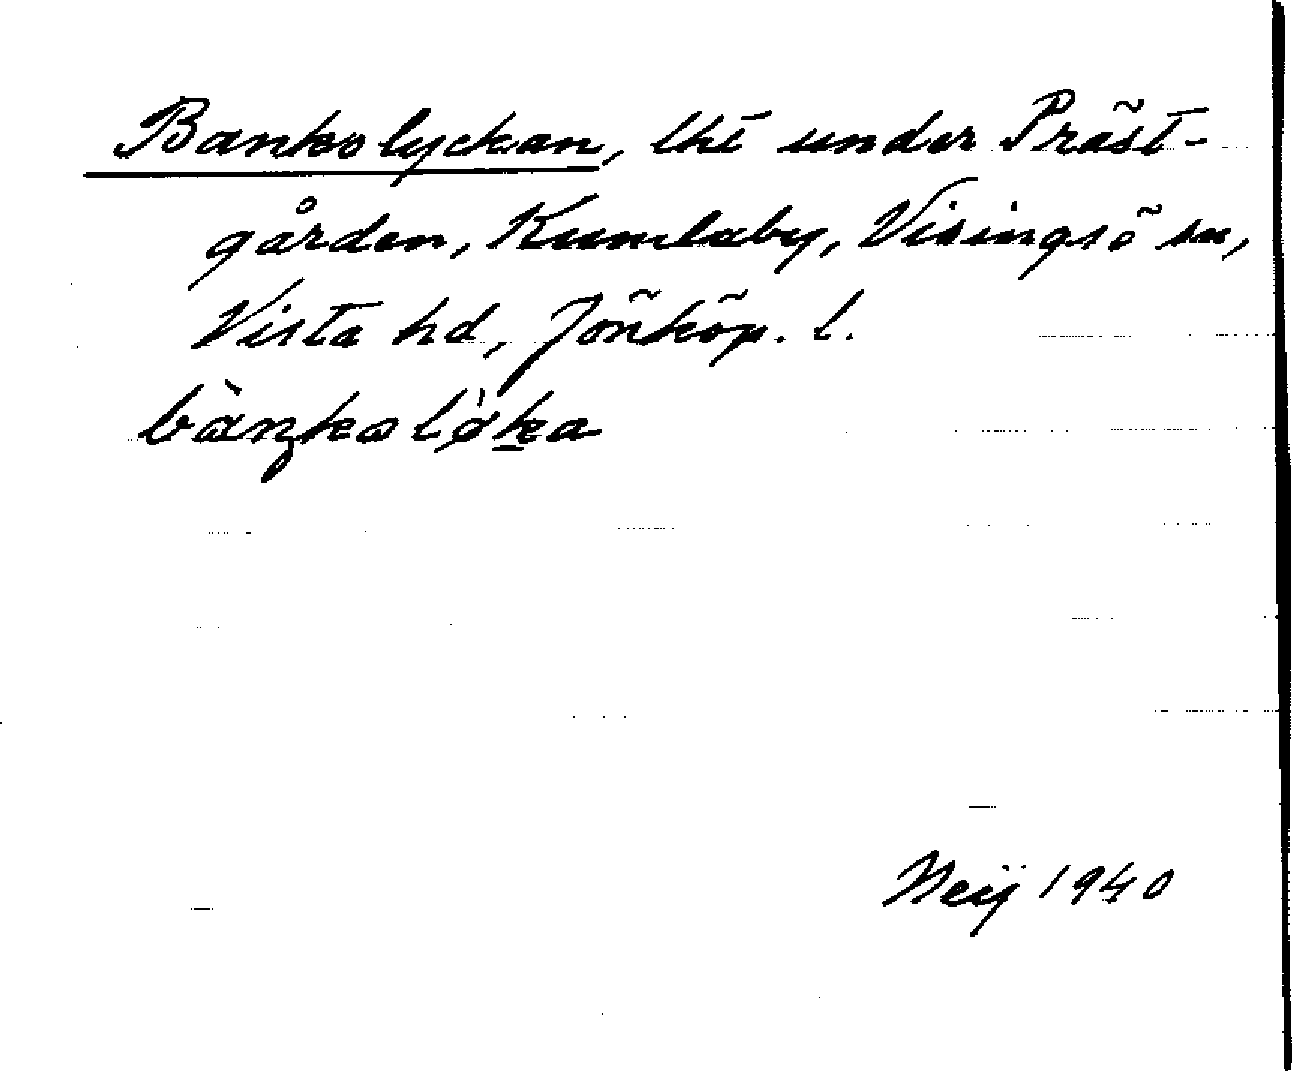 Bankolyckan, lht under Präst-
gården, Kumlaby, Visingsö sn,
Vista hd, Jönköp. l.
Neij 1940